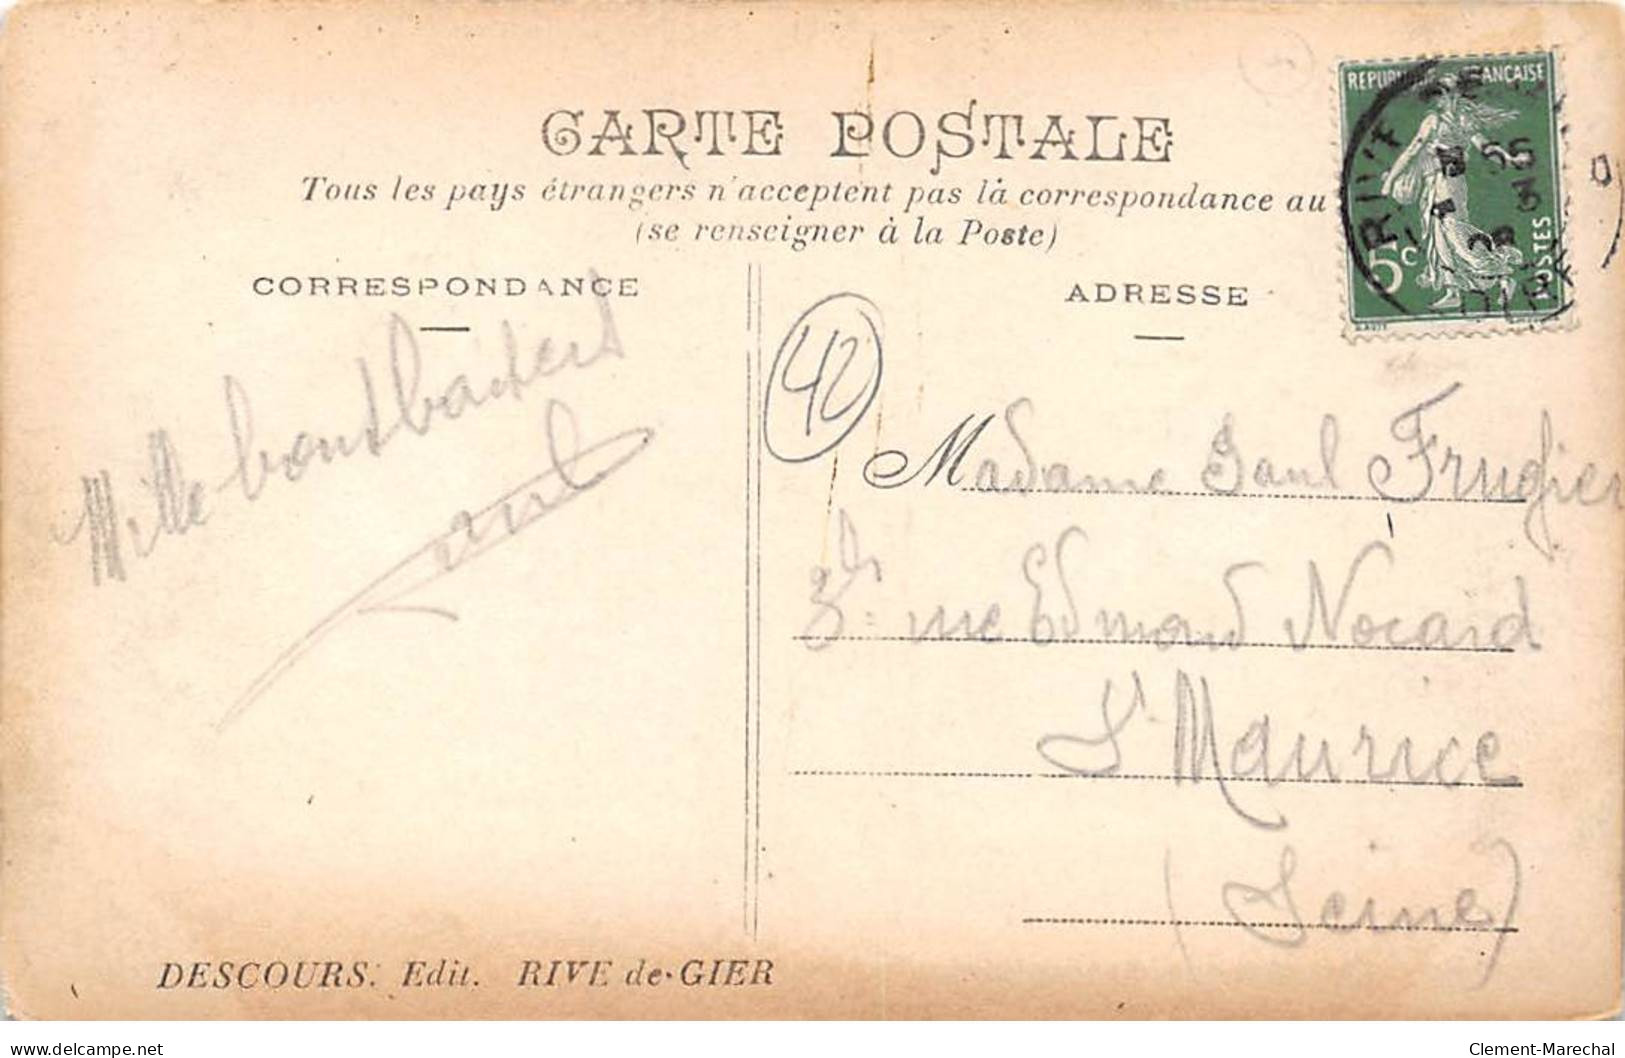 CARTE POSTALE
Tous les pays étrangers n'acceptent pas la correspondance au
(se renseigner à la Poste)
CORRESPONDANCE
ADRESSE
REPUBLIQUE FRANÇAISE
5c
POSTES
RIVE DE
42
Mille
Paul
Madame Paul Frugier
rue Edmond Nocard
St Maurice
(Seine)
DESCOURS. Edit. RIVE de-GIER
delcampe.net
Clement-Marechal